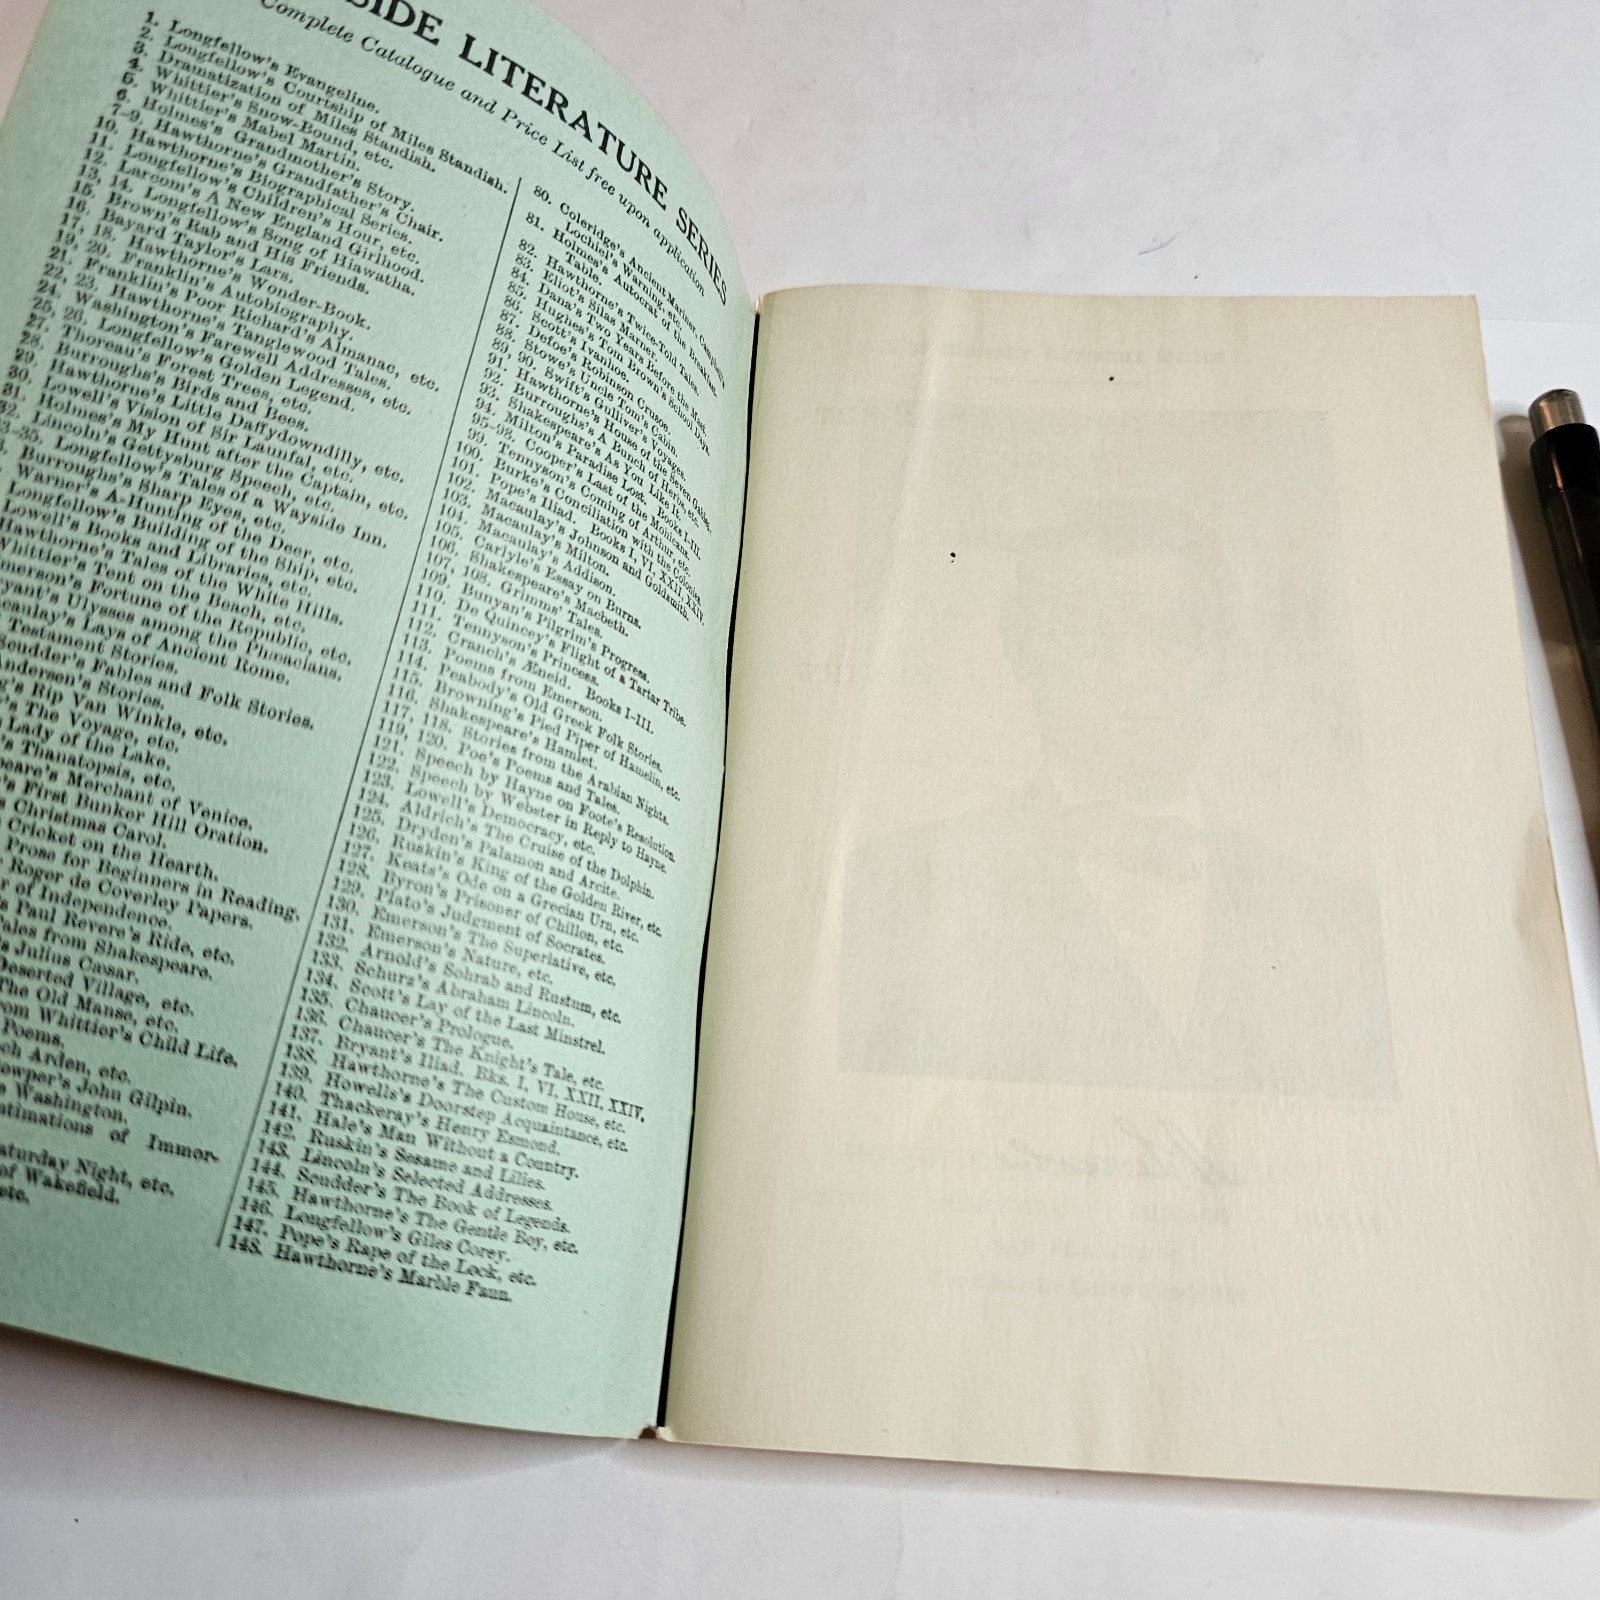 SIDE LITERATURE SERIES
Complete Catalogue and Price List free upon application
1. Longfellow's Evangeline.
2. Longfellow's Courtship of Miles Standish.
3. Dramatization of Miles Standish.
4. Whittier's Snow-Bound, etc.
5. Whittier's Mabel Martin.
6. Holmes's Grandmother's Story.
7-9. Hawthorne's Grandfather's Chair.
10. Hawthorne's Biographical Series.
11. Longfellow's Children's Hour, etc.
12. Larcom's A New England Girlhood.
13, 14. Longfellow's Song of Hiawatha.
15. Brown's Rab and His Friends.
16. Bayard Taylor's Lars.
17, 18. Hawthorne's Wonder-Book.
19, 20. Franklin's Autobiography.
21. Franklin's Poor Richard's Almanac, etc.
22, 23. Hawthorne's Tanglewood Tales.
24. Washington's Farewell Addresses, etc.
25, 26. Longfellow's Golden Legend.
27. Thoreau's Forest Trees, etc.
28. Burroughs's Birds and Bees.
29. Hawthorne's Little Daffydowndilly, etc.
30. Lowell's Vision of Sir Launfal, etc.
31. Holmes's My Hunt after the Captain, etc.
32. Lincoln's Gettysburg Speech, etc.
3-35. Longfellow's Tales of a Wayside Inn.
Burroughs's Sharp Eyes, etc.
Warner's A-Hunting of the Deer, etc.
Longfellow's Building of the Ship, etc.
Lowell's Books and Libraries, etc.
Hawthorne's Tales of the White Hills.
Whittier's Tent on the Beach, etc.
merson's Fortune of the Republic, etc.
yant's Ulysses among the Phæacians.
caulay's Lays of Ancient Rome.
Testament Stories.
Scudder's Fables and Folk Stories.
Andersen's Stories.
g's Rip Van Winkle, etc.
's The Voyage, etc.
Lady of the Lake.
's Thanatopsis, etc.
peare's Merchant of Venice.
's First Bunker Hill Oration.
s Christmas Carol.
Cricket on the Hearth.
Prose for Beginners in Reading.
Roger de Coverley Papers.
r of Independence.
s Paul Revere's Ride, etc.
ales from Shakespeare.
s Julius Cæsar.
Deserted Village, etc.
The Old Manse, etc.
om Whittier's Child Life.
Poems.
ch Arden, etc.
owper's John Gilpin.
Washington.
ntimations of Immor-
aturday Night, etc.
of Wakefield.
etc.
80. Coleridge's Ancient Mariner, Campbell's
Lochiel's Warning, etc.
81. Holmes's Autocrat of the Breakfast-
Table.
82. Hawthorne's Twice-Told Tales.
83. Eliot's Silas Marner.
84. Dana's Two Years Before the Mast.
85. Hughes' Tom Brown's School Days.
86. Scott's Ivanhoe.
87. Defoe's Robinson Crusoe.
88. Stowe's Uncle Tom's Cabin.
89, 90. Swift's Gulliver's Voyages.
91. Hawthorne's House of the Seven Gables.
92. Burroughs's A Bunch of Herbs, etc.
93. Shakespeare's As You Like It.
94. Milton's Paradise Lost. Books I-III.
95-98. Cooper's Last of the Mohicans.
99. Tennyson's Coming of Arthur, etc.
100. Burke's Conciliation with the Colonies.
101. Pope's Iliad. Books I, VI, XXII, XXIV.
102. Macaulay's Johnson and Goldsmith.
103. Macaulay's Milton.
104. Macaulay's Addison.
105. Carlyle's Essay on Burns.
106. Shakespeare's Macbeth.
107, 108. Grimms' Tales.
109. Bunyan's Pilgrim's Progress.
110. De Quincey's Flight of a Tartar Tribe.
111. Tennyson's Princess.
112. Cranch's Æneid. Books I-III.
113. Poems from Emerson.
114. Peabody's Old Greek Folk Stories.
115. Browning's Pied Piper of Hamelin, etc.
116. Shakespeare's Hamlet.
117, 118. Stories from the Arabian Nights.
119, 120. Poe's Poems and Tales.
121. Speech by Hayne on Foote's Resolution.
122. Speech by Webster in Reply to Hayne.
123. Lowell's Democracy, etc.
124. Aldrich's The Cruise of the Dolphin.
125. Dryden's Palamon and Arcite.
126. Ruskin's King of the Golden River, etc.
127. Keats's Ode on a Grecian Urn, etc.
128. Byron's Prisoner of Chillon, etc.
129. Plato's Judgment of Socrates.
130. Emerson's The Superlative, etc.
131. Emerson's Nature, etc.
132. Arnold's Sohrab and Rustum, etc.
133. Schurz's Abraham Lincoln.
134. Scott's Lay of the Last Minstrel.
135. Chaucer's Prologue.
136. Chaucer's The Knight's Tale, etc.
137. Bryant's Iliad. Bks. I, VI, XXII, XXIV.
138. Hawthorne's The Custom House, etc.
139. Howells's Doorstep Acquaintance, etc.
140. Thackeray's Henry Esmond.
141. Hale's Man Without a Country.
142. Ruskin's Sesame and Lilies.
143. Lincoln's Selected Addresses.
144. Scudder's The Book of Legends.
145. Hawthorne's The Gentle Boy, etc.
146. Longfellow's Giles Corey.
147. Pope's Rape of the Lock, etc.
148. Hawthorne's Marble Faun.